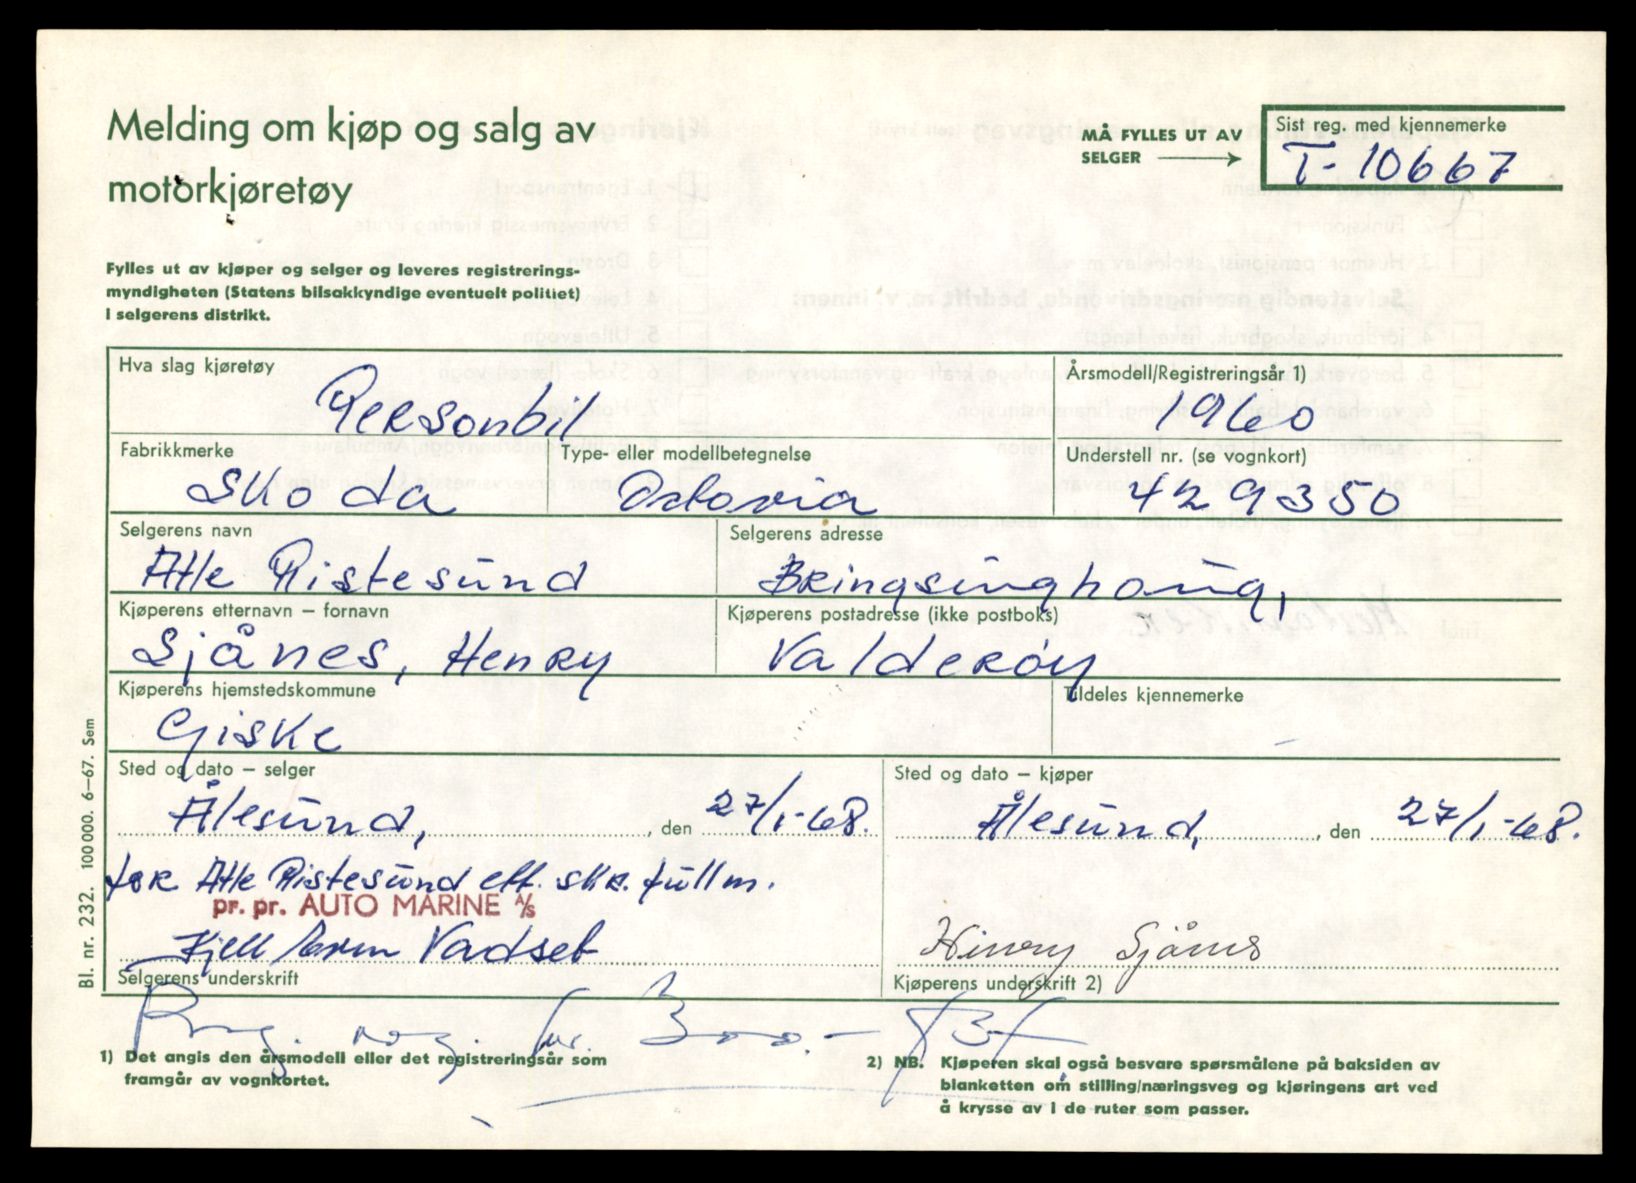 Melding om kjøp og salg av
motorkjøretøy
MÅ FYLLES UT AV
SELGER
Sist reg. med kjennemerke
T-10667
Fylles ut av kjøper og selger og leveres registrerings-
myndigheten (Statens bilsakkyndige eventuelt politiet)
i selgerens distrikt.
Hva slag kjøretøy
Personbil
Årsmodell/Registreringsår 1)
1960
Fabrikkmerke
Skoda
Type- eller modellbetegnelse
Octavia
Understell nr. (se vognkort)
429350
Selgerens navn
Atle Ristesund
Selgerens adresse
Bringsinghaug,
Kjøperens etternavn – fornavn
Sjånes, Henry
Kjøperens postadresse (ikke postboks)
Valderøy
Kjøperens hjemstedskommune
Giske
Tildeles kjennemerke
Sted og dato – selger
Ålesund, , den 27/1-68.
Sted og dato – kjøper
Ålesund, , den 27/1-68.
for Atle Ristesund etf. skr. fullm.
pr. pr. AUTO MARINE A/S
Kjell Vadset
Selgerens underskrift
Henry Sjånes
Kjøperens underskrift 2)
1) Det angis den årsmodell eller det registreringsår som
framgår av vognkortet.
2) NB. Kjøperen skal også besvare spørsmålene på baksiden av
blanketten om stilling/næringsveg og kjøringens art ved
å krysse av i de ruter som passer.
Bl. nr. 232. 100 000. 6–67. Sem